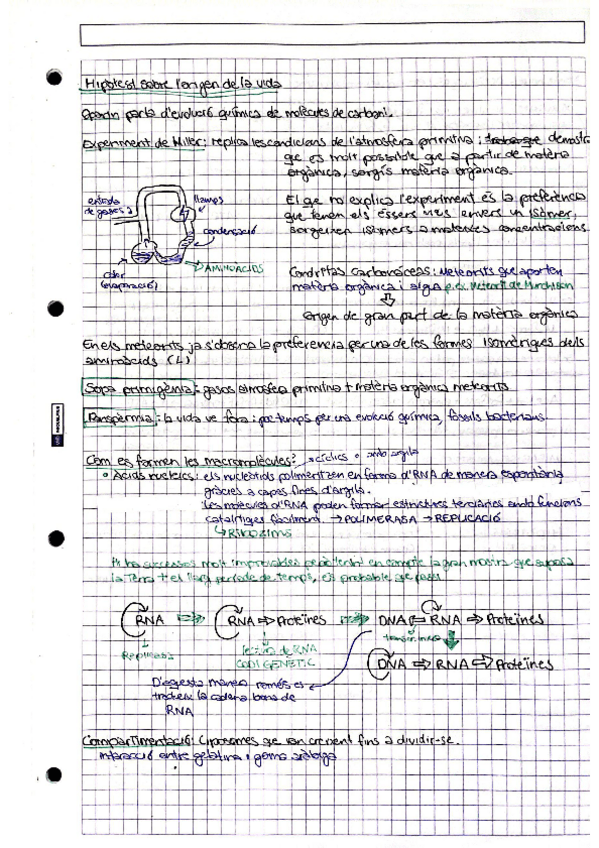 Hipòtesi sobre l'origen de la vida
parla d'evolució química de molècules de carboni.
Experiment de Miller: replica les condicions de l'atmosfera primitiva; demostra
que es molt possible que a partir de matèria
orgànica, sorgís matèria orgànica.
entrada
de gasos
llamps
condensació
calor
(evaporació)
AMINOÀCIDS
El que no explica l'experiment és la preferència
que tenen els éssers vius envers un isòmer,
sorgeixen isòmers a mateixes concentracions
Condrites carbonàcees: Meteorits que aporten
matèria orgànica i aigua p.ex. Meteorit de Murchison
origen de gran part de la matèria orgànica
En els meteorits ja s'observa la preferencia per una de les formes isomèriques dels
aminoàcids (L)
Sopa primigènia: gasos atmosfera primitiva + matèria orgànica meteorits
Panspèrmia: la vida ve fora: poc temps per una evolució química, fòssils bacterians.
Com es formen les macromolècules? cíclics o amb argila
• Àcids nucleics: els nucleòtids polimeritzen en forma d'RNA de manera espontània
gràcies a capes fines d'argila.
Les molècules d'RNA poden formar estructures terciàries amb funcions
catalítiques fàcilment. → POLIMERASA → REPLICACIÓ
↳ RIBOZIMS
Hi ha successos molt improbables en compte la gran mostra que suposa
la Terra + el llarg període de temps, es probable que passi
RNA ⇒ RNA ⇒ Proteïnes ⇒ DNA ⇐ RNA ⇒ Proteïnes
Replicasa
lectura de RNA
CODI GENETIC
DNA ⇒ RNA ⇒ Proteïnes
D'aquesta manera només es
tradueix la cadena bona de
RNA
Compartimentació: Liposomes que van creixent fins a dividir-se.
interacció entre gelatina i goma aràbiga